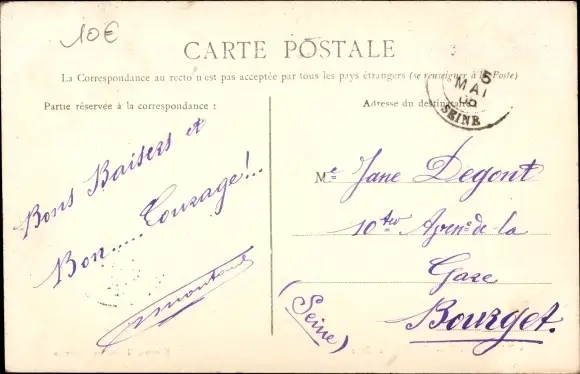 10€
CARTE POSTALE
La Correspondance au recto n'est pas acceptée par tous les pays étrangers (se renseigner à la Poste)
Partie réservée à la correspondance :
Adresse du destinataire
5
MAI
SEINE
Bons Baisers et
Bon..... Courage!..
Me Jane Degont
10ter Aven. de la
Gare
Bourget.
(Seine)